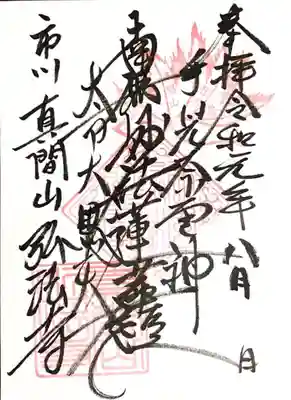 奉拝 令和元年 八月
手児奈霊神
南無妙法蓮華経
太刀大黒天
市川 真間山 弘法寺